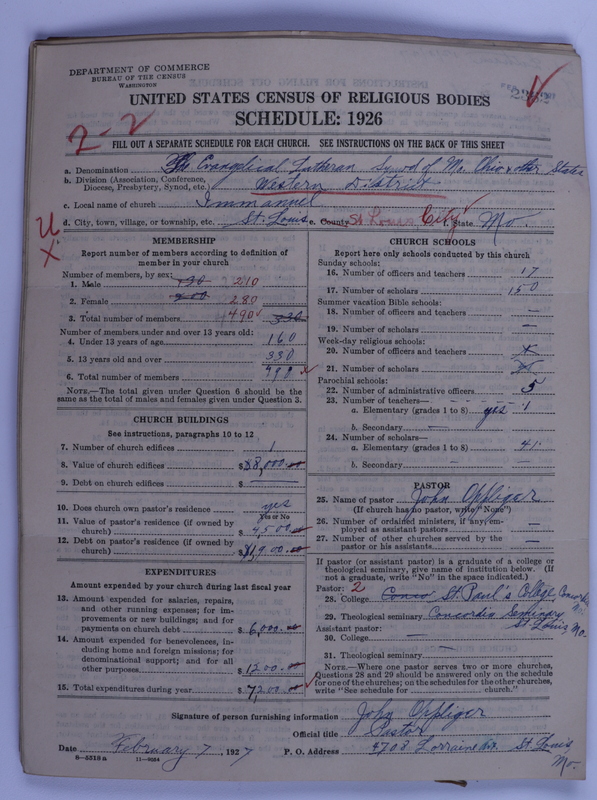 DEPARTMENT OF COMMERCE
BUREAU OF THE CENSUS
WASHINGTON
UNITED STATES CENSUS OF RELIGIOUS BODIES
SCHEDULE: 1926
2-2
FILL OUT A SEPARATE SCHEDULE FOR EACH CHURCH. SEE INSTRUCTIONS ON THE BACK OF THIS SHEET
a. Denomination The Evanglical Lutheran Synod of Mo. Ohio & other States
b. Division (Association, Conference, Diocese, Presbytery, Synod, etc.) Western District
c. Local name of church Immanuel
d. City, town, village, or township, etc. St. Louis e. County St Louis City f. State Mo.
MEMBERSHIP
Report number of members according to definition
of member in your church
Number of members, by sex:
1. Male 190 210
2. Female 280
3. Total number of members 490 330
Number of members under and over 13 years old:
4. Under 13 years of age 160
5. 13 years old and over 330
6. Total number of members 490
NOTE.—The total given under Question 6 should be
the same as the total of males and females given under Question 3.
CHURCH BUILDINGS
See instructions, paragraphs 10 to 12
7. Number of church edifices 1
8. Value of church edifices $
9. Debt on church edifices $ —
10. Does church own pastor's residence yes
Yes or No
11. Value of pastor's residence (if owned by
church) $ 4,500.00
12. Debt on pastor's residence (if owned by
church) $
EXPENDITURES
Amount expended by your church during last fiscal year
13. Amount expended for salaries, repairs,
and other running expenses; for im-
provements or new buildings; and for
payments on church debt $ 6,000.00
14. Amount expended for benevolences, in-
cluding home and foreign missions; for
denominational support; and for all
other purposes $ 1200.00
15. Total expenditures during year $ 7,200.00
CHURCH SCHOOLS
Report here only schools conducted by this church
Sunday schools:
16. Number of officers and teachers 17
17. Number of scholars 150
Summer vacation Bible schools:
18. Number of officers and teachers —
19. Number of scholars —
Week-day religious schools:
20. Number of officers and teachers x
21. Number of scholars
Parochial schools:
22. Number of administrative officers 5
23. Number of teachers—
a. Elementary (grades 1 to 8) yes 1
b. Secondary —
24. Number of scholars—
a. Elementary (grades 1 to 8) 41
b. Secondary —
PASTOR
25. Name of pastor John Oppliger
(If church has no pastor, write "None")
26. Number of ordained ministers, if any, em-
ployed as assistant pastors —
27. Number of other churches served by the
pastor or his assistants —
If pastor (or assistant pastor) is a graduate of a college or
theological seminary, give name of institution below. (If
not a graduate, write "No" in the space indicated.)
Pastor: 2
28. College Conco St. Paul's College Concordia Mo.
29. Theological seminary Concordia Seminary St Louis Mo.
Assistant pastor:
30. College —
31. Theological seminary —
NOTE.—Where one pastor serves two or more churches,
Questions 28 and 29 should be answered only on the schedule
for one of the churches; on the schedules for the other churches,
write "See schedule for church."
Signature of person furnishing information John Oppliger
Official title Pastor
Date February 7, 1927 P. O. Address 3708 Lorraine St. Louis Mo.
8—5318a 11—9064